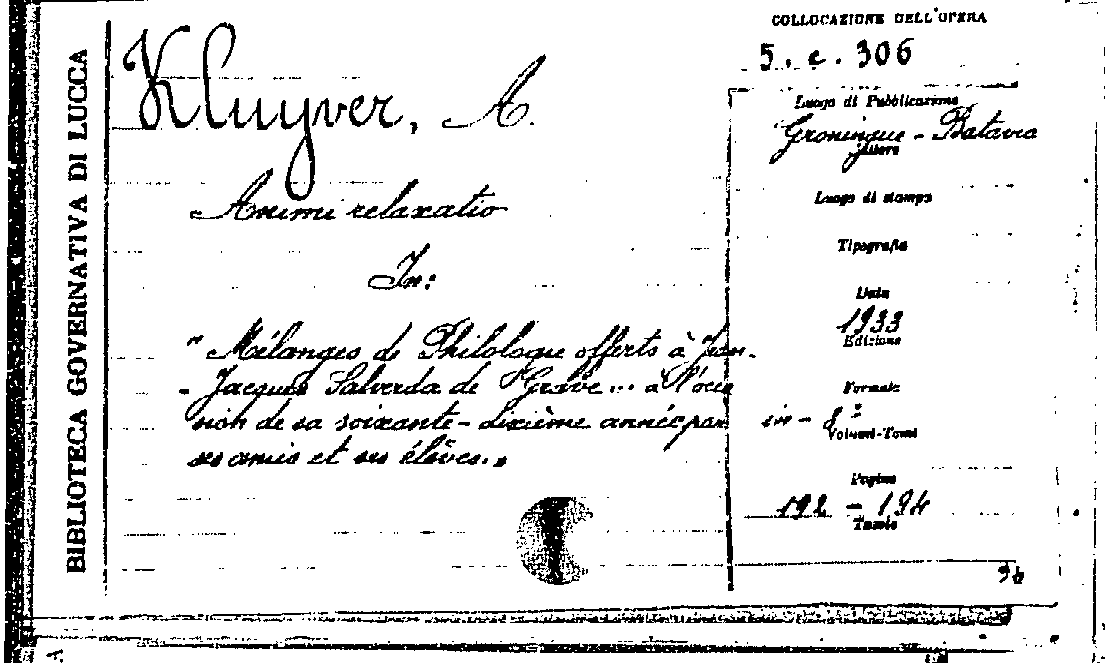 BIBLIOTECA GOVERNATIVA DI LUCCA
Kluyver, A.
Animi relaxatio
In:
"Mélanges de Philologie offerts à Jean-
-Jacques Salverda de Grave... à l'occa
sion de sa soixante-dixième année par
ses amis et ses élèves.„
COLLOCAZIONE DELL'OPERA
5. c. 306
Luogo di Pubblicazione
Groningue - Batavia
Editore
Luogo di stampa
Tipografia
Data
1933
Edizione
Formato
in-8º
Volumi-Tomi
Pagine
192 - 194
Tavole